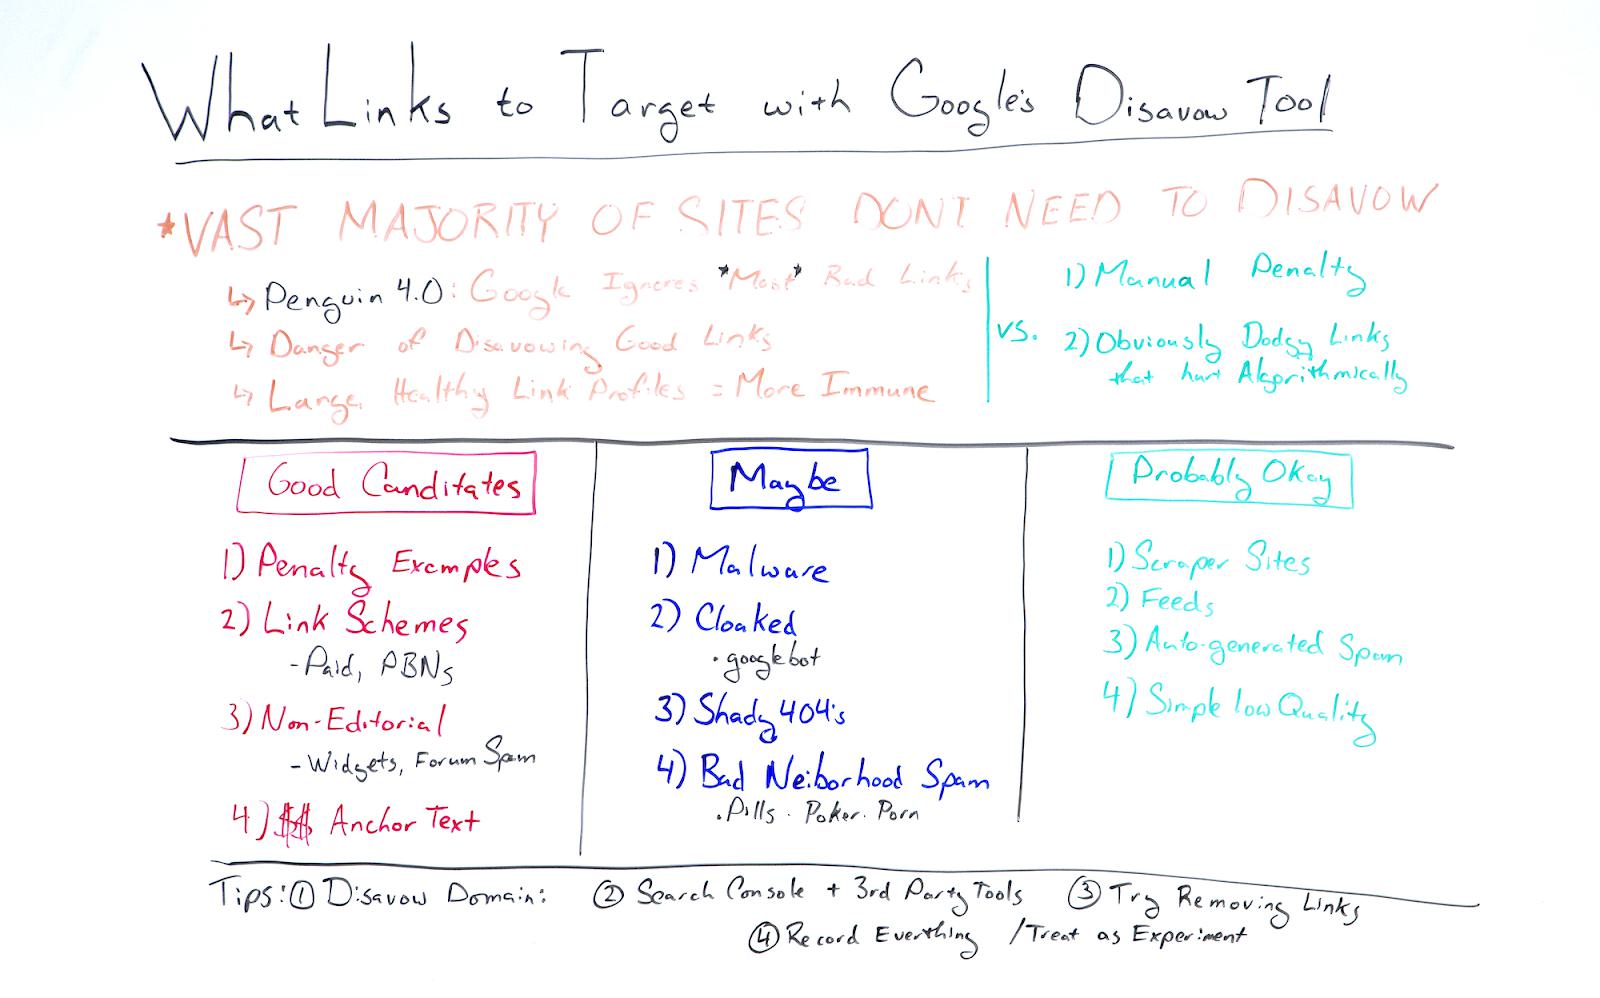 What Links to Target with Google's Disavow Tool
*VAST MAJORITY OF SITES DONT NEED TO DISAVOW
↳ Penguin 4.0: Google Ignores *Most* Bad Links
↳ Danger of Disavowing Good Links
↳ Large, Healthy Link Profiles = More Immune
vs.
1) Manual Penalty
2) Obviously Dodgy Links
that hurt Algorithmically
Good Canditates
1) Penalty Examples
2) Link Schemes
- Paid, PBNs
3) Non-Editorial
- Widgets, Forum Spam
4) $$ Anchor Text
Maybe
1) Malware
2) Cloaked
• googlebot
3) Shady 404's
4) Bad Neiborhood Spam
• Pills • Poker • Porn
Probably Okay
1) Scraper Sites
2) Feeds
3) Auto-generated Spam
4) Simple low Quality
Tips: ① Disavow Domain: ② Search Console + 3rd Party Tools ③ Try Removing Links
④ Record Everthing / Treat as Experiment